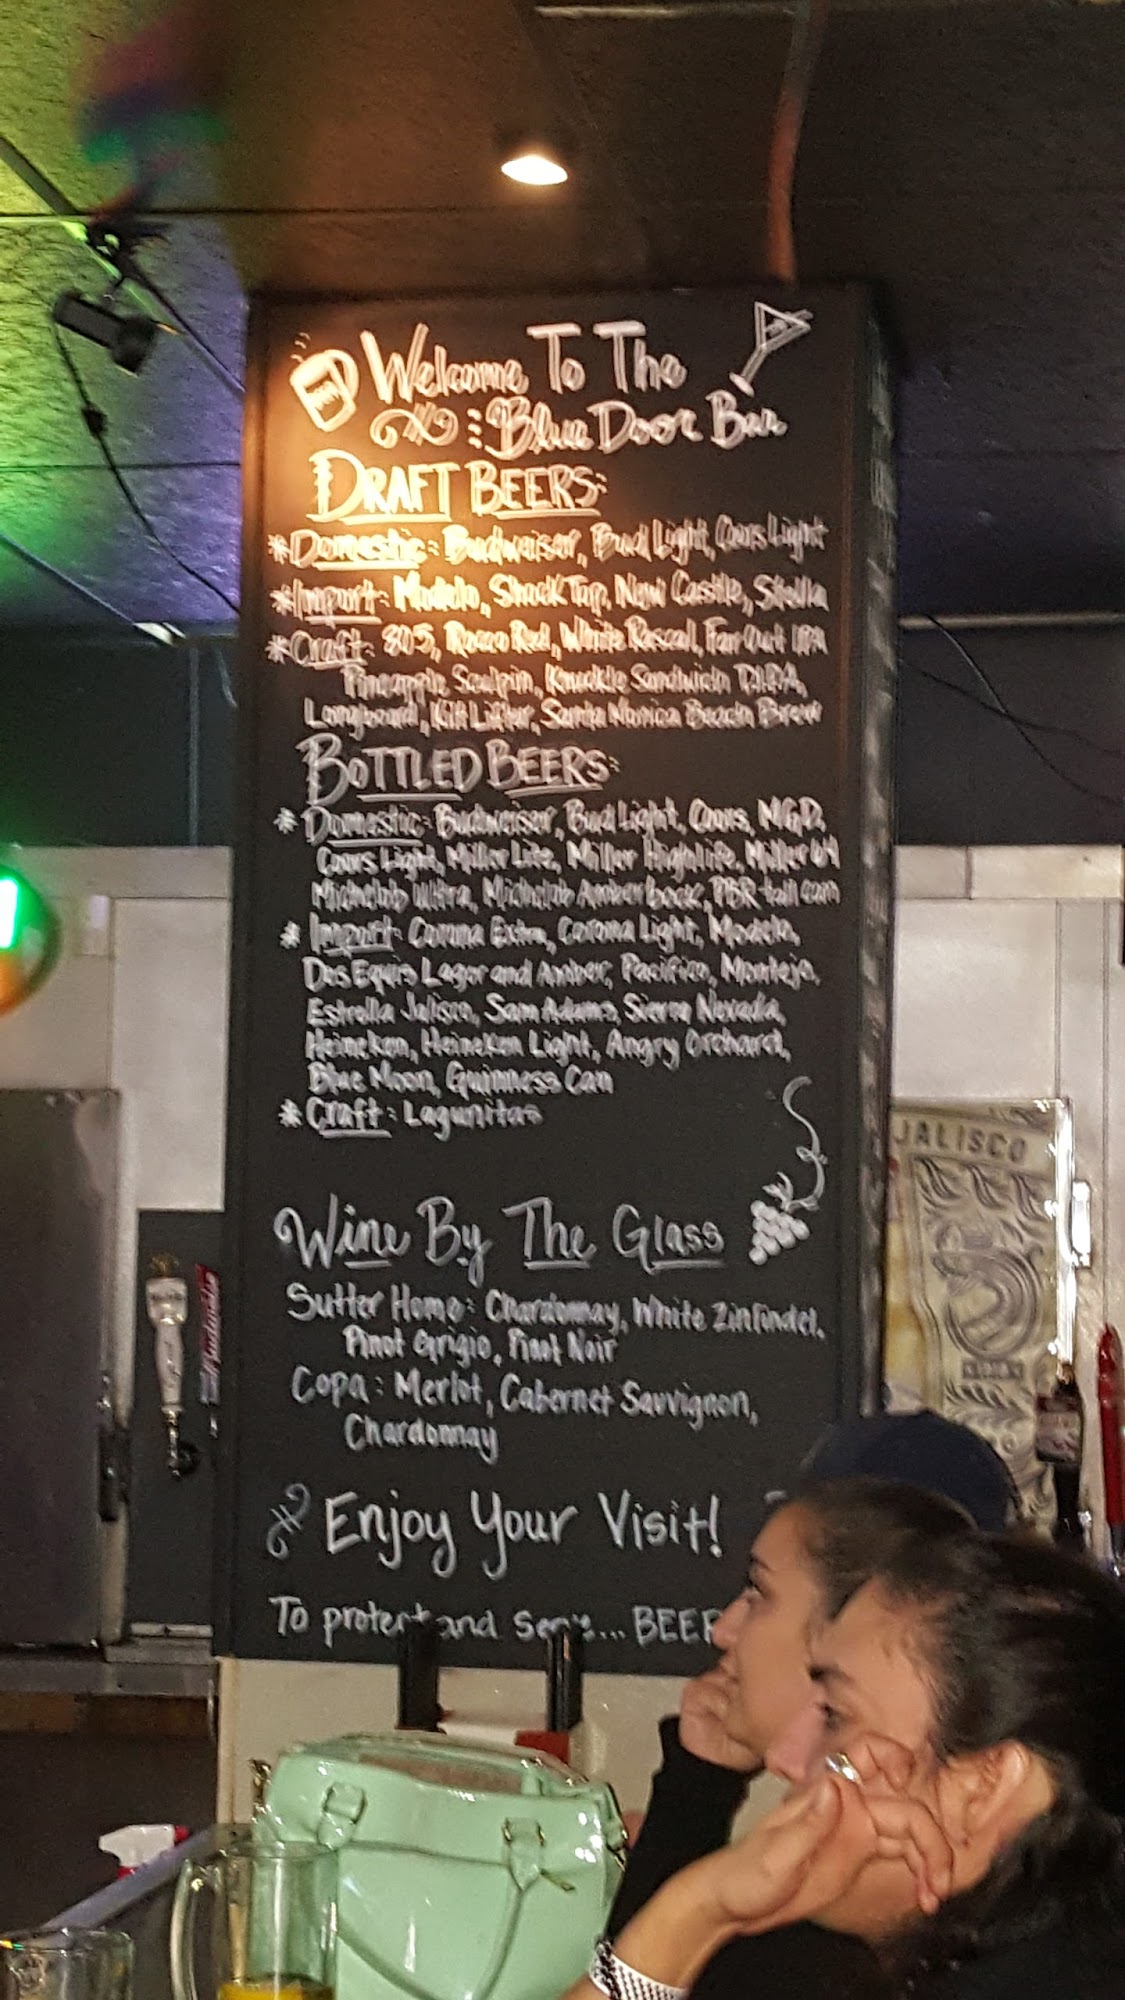 Welcome To The
Blue Door Bar
DRAFT BEERS:
*Domestic: Budweiser, Bud Light, Coors Light
*Import: Modelo, Shock Top, New Castle, Stella
*Craft: 805, Rocco Red, White Rascal, Far Out IPA
Pineapple Sculpin, Knuckle Sandwich DIPA,
Longboard, Kilt Lifter, Santa Monica Beach Brew
BOTTLED BEERS:
* Domestic: Budweiser, Bud Light, Coors, MGD,
Coors Light, Miller Lite, Miller Highlife, Miller 64
Michelob Ultra, Michelob Amber bock, PBR tall can
* Import: Corona Extra, Corona Light, Modelo,
Dos Equis Lager and Amber, Pacifico, Montejo,
Estrella Jalisco, Sam Adams, Sierra Nevada,
Heineken, Heineken Light, Angry Orchard,
Blue Moon, Guinness Can
* Craft: Lagunitas
Wine By The Glass
Sutter Home: Chardonnay, White Zinfindel,
Pinot Grigio, Pinot Noir
Copa: Merlot, Cabernet Sauvignon,
Chardonnay
Enjoy Your Visit!
To protect and Serve... BEER
JALISCO
Budweiser